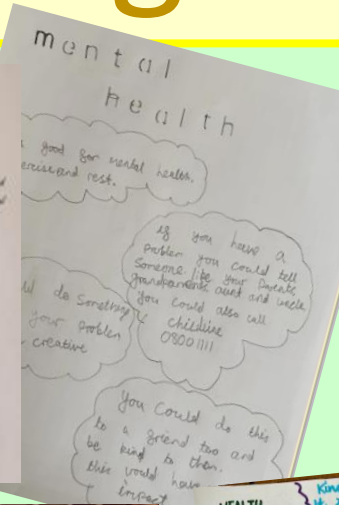 mental
health
good for mental health.
and rest.
if you have a
problem you could tell
someone like your parents
grandparents aunt and uncle
you could also call
childline
08001111
do something
your problem
creative
You could do this
to a friend too and
be kind to them.
this would have
impact
HEALTH